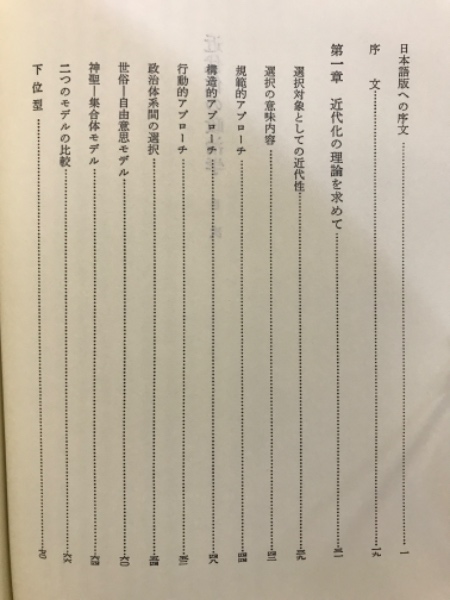 日本語版への序文 一
序文 一九
第一章 近代化の理論を求めて 三一
選択対象としての近代性 三九
選択の意味内容 四二
規範的アプローチ 四四
構造的アプローチ 四八
行動的アプローチ 五二
政治体系間の選択 五四
世俗—自由意思モデル 六〇
神聖—集合体モデル 六四
二つのモデルの比較 六六
下位型 七〇